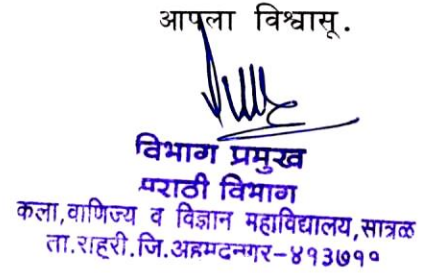 आपला विश्वासू.
विभाग प्रमुख
मराठी विभाग
कला,वाणिज्य व विज्ञान महाविद्यालय,सात्रळ
ता.राहूरी.जि.अहमदनगर-४१३७११